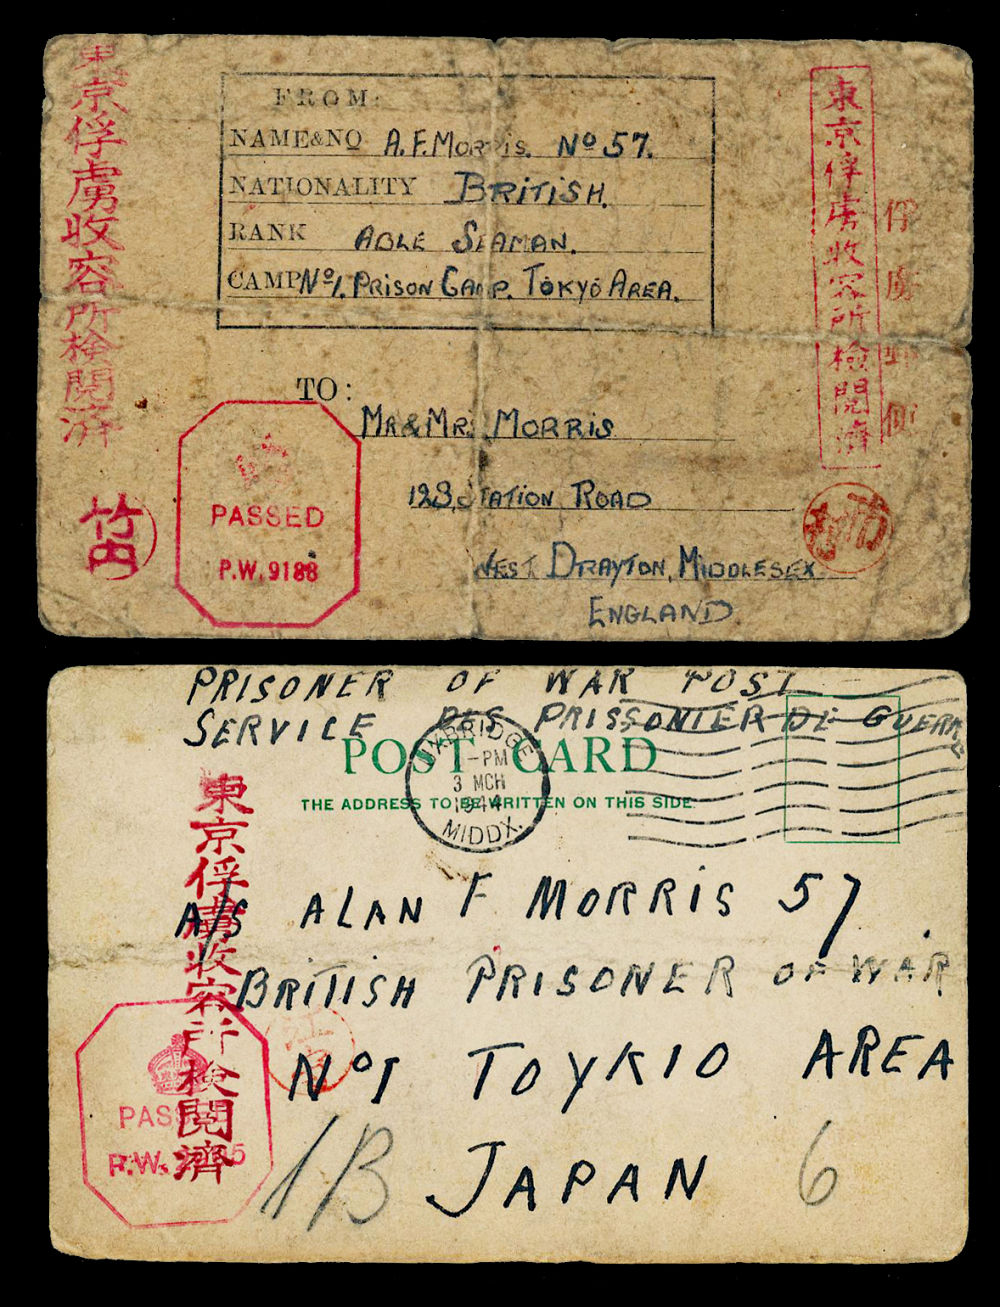 東京俘虜收容所検閲済
竹内
FROM:
NAME&NO A.F.MORRIS. Nº 57.
NATIONALITY BRITISH.
RANK ABLE SEAMAN.
CAMP Nº1. PRISON CAMP. TOKYO AREA.
東京俘虜收容所檢閲濟
俘虜郵便
TO:
MR & MRS MORRIS
123, STATION ROAD
WEST DRAYTON, MIDDLESEX
ENGLAND.
PASSED
P.W. 9188
PRISONER OF WAR POST
SERVICE DES PRISSONIER DE GUERRE
POST CARD
THE ADDRESS TO BE WRITTEN ON THIS SIDE
UXBRIDGE
-PM
3 MCH
1944
MIDDX.
東京俘虜收容所検閲濟
A/S ALAN F MORRIS 57,
BRITISH PRISONER OF WAR
Nº1 TOYKIO AREA
JAPAN
1B
6
PASSED
P.W.